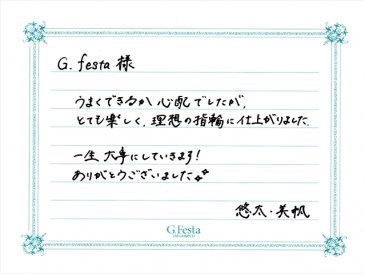 G. festa 様
うまくできるか心配でしたが、
とても楽しく、理想の指輪に仕上がりました。
一生大事にしていきます!
ありがとうございました
悠太・美帆
G.Festa